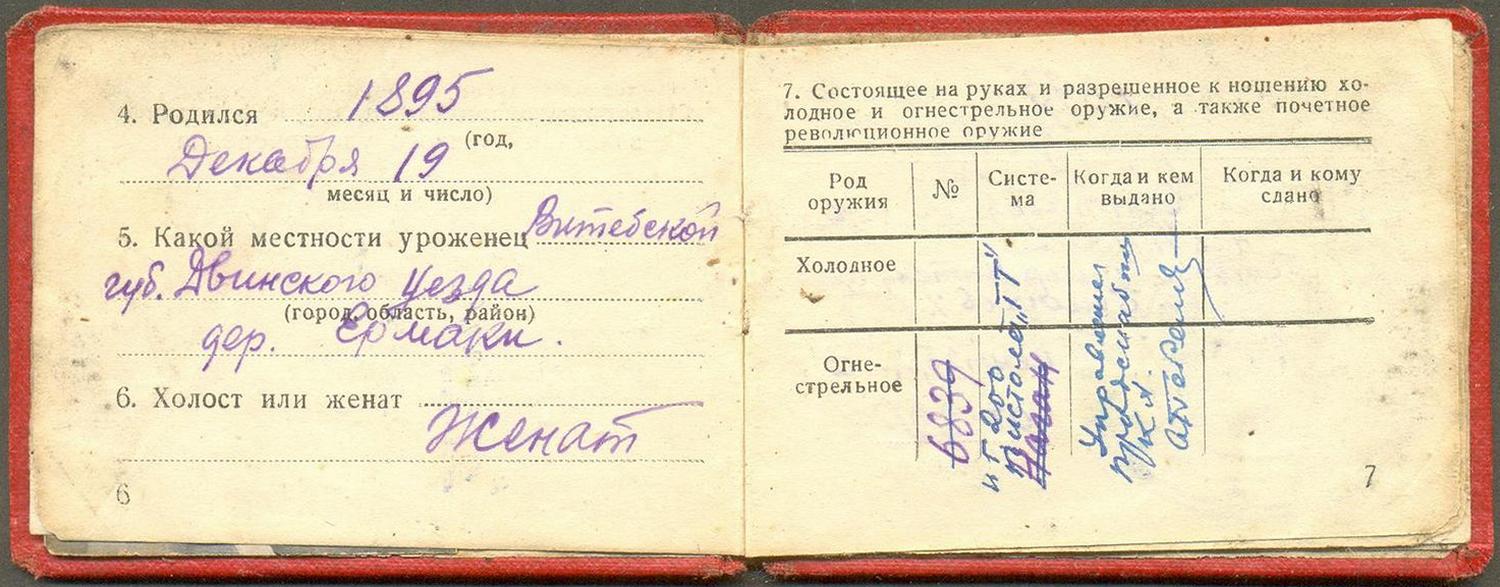 4. Родился 1895
(год,
Декабря 19
месяц и число)
5. Какой местности уроженец Витебской
губ. Двинского уезда
(город, область, район)
дер. Ермаки.
6. Холост или женат
Женат
6
7. Состоящее на руках и разрешенное к ношению хо-
лодное и огнестрельное оружие, а также почетное
революционное оружие
Род оружия
№
Систе-
ма
Когда и кем
выдано
Когда и кому
сдано
Холодное
Огне-
стрельное
6839
Пистолет „ТТ"
Наган
Управлением
РККА
7